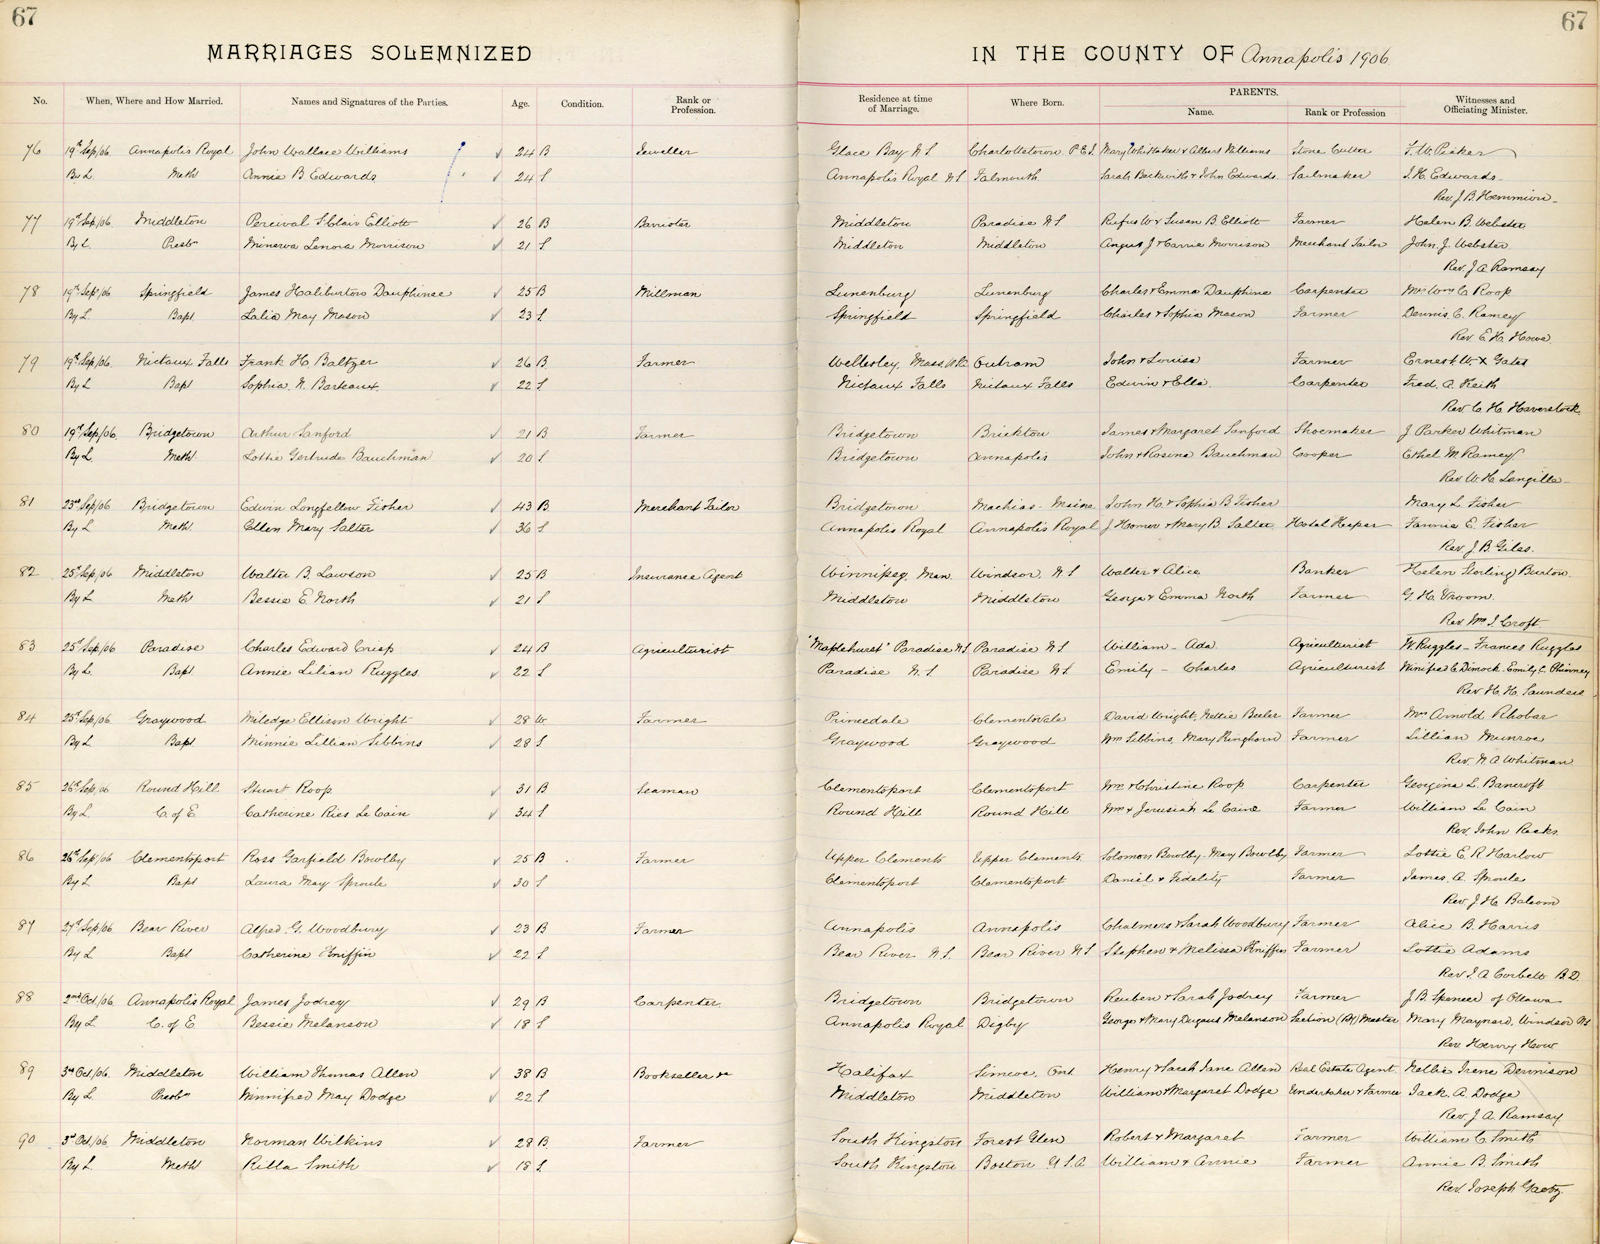 67
67
MARRIAGES SOLEMNIZED IN THE COUNTY OF Annapolis 1906
No. When, Where and How Married. Names and Signatures of the Parties. Age. Condition. Rank or Profession. Residence at time of Marriage. Where Born. PARENTS. Name. Rank or Profession Witnesses and Officiating Minister.
76 19th Sep/06 Annapolis Royal John Wallace Williams 24 B Jeweller Glace Bay N S Charlottetown P.E.I. Mary Whittaker & Albert Williams Stone Cutter
By L Meth Annie B Edwards 24 S Annapolis Royal N S Falmouth Sarah Beckwith & John Edwards Sailmaker J. H. Edwards
Rev. J. B. Hemmeon
77 19th Sep/06 Middleton Percival St Clair Elliott 26 B Barrister Middleton Paradise N S Rufus W & Susan B. Elliott Farmer Helen B. Webster
By L Presbn Minerva Lenora Morrison 21 S Middleton Middleton Angus J & Carrie Morrison Merchant Tailor John J. Webster
Rev. J A Ramsay
78 19th Sep/06 Springfield James Haliburton Dauphinee 25 B Millman Lunenburg Lunenburg Charles & Emma Dauphine Carpenter Mrs Wm C Roop
By L Bapt Lalia May Mason 23 S Springfield Springfield Charles & Sophia Mason Farmer Dennis C. Ramey
Rev. E. H. Howe
79 19th Sep/06 Nictaux Falls Frank H. Baltzer 26 B Farmer Wellesley, Mass. Outram John & Louisa Farmer Ernest W. X Gates
By L Bapt Sophia N. Barteaux 22 S Nictaux Falls Nictaux Falls Edwin & Ella Carpenter Fred. A. Keith
Rev C. H. Haverstock
80 19th Sep/06 Bridgetown Arthur Sanford 21 B Farmer Bridgetown Brickton James & Margaret Sanford Shoemaker J Parker Whitman
By L Meth Lottie Gertrude Bauchman 20 S Bridgetown Annapolis John & Rosina Bauchman Cooper Ethel M Ramey
Rev W. H. Langille
81 23rd Sep/06 Bridgetown Edwin Longfellow Fisher 43 B Merchant Tailor Bridgetown Machias Maine John H. & Sophia B Fisher Mary L Fisher
By L Meth Ellen Mary Salter 36 S Annapolis Royal Annapolis Royal J Homer & Mary B. Salter Hotel Keeper Fannie E. Fisher
Rev. J. B. Giles.
82 25th Sep/06 Middleton Walter B. Lawson 25 B Insurance Agent Winnipeg, Man. Windsor, N S Walter & Alice Banker Helen Sterling Burton.
By L Meth Bessie E. North 21 S Middleton Middleton George & Emma North Farmer G. H. Vroom.
Rev. Wm J. Croft
83 25th Sep/06 Paradise Charles Edward Crisp 24 B Agriculturist "Maplehurst" Paradise N S Paradise N S William - Ada Agriculturist W. Ruggles - Frances Ruggles
By L. Bapt Annie Lilian Ruggles 22 S Paradise N. S Paradise N S. Emily - Charles Agriculturist Winifred C Dimock. Emily C. Phinney
Rev H. H. Saunders
84 25th Sep/06 Graywood Miledge Ellison Wright 28 W Farmer Princedale Clementsvale David Wright, Nettie Beeler Farmer Mrs Arnold
By L Bapt Minnie Lillian Gibbins 28 S Graywood Graywood Wm Gibbins Mary Ringhorn Farmer Lillian Munroe
Rev. N A Whitman
85 26th Sep/06 Round Hill Stuart Roop 31 B Seaman Clementsport Clementsport Wm & Christine Roop Carpenter Georgina L. Bancroft
By L C. of E Catherine Ries Le Cain 34 S Round Hill Round Hill Wm & Jerusiah Le Caine Farmer William Le Cain
Rev. John Reeks
86 26th Sep/06 Clementsport Ross Garfield Bowlby 25 B Farmer Upper Clements Upper Clements Solomon Bowlby Mary Bowlby Farmer Lottie E. R Harlow
By L Bapt Laura May Sproule 30 S Clementsport Clementsport Daniel & Fidelity Farmer James A Sproule
Rev. J. H. Balcom
87 27th Sep/06 Bear River Alfred G. Woodbury 23 B Farmer Annapolis Annapolis Chalmers & Sarah Woodbury Farmer Alice B. Harris
By L Bapt Catherine Kniffin 22 S Bear River N. S. Bear River N S Stephen & Melissa Kniffin Farmer Lottie Adams
Rev I. A Corbett B.D.
88 2nd Oct/06 Annapolis Royal James Jodrey 29 B Carpenter Bridgetown Bridgetown Reuben & Sarah Jodrey Farmer J. B. Spencer of Ottawa
By L C. of E Bessie Melanson 18 S Annapolis Royal Digby George & Mary Dugaus Melanson Section (Ry) Master Mary Maynard, Windsor NS
Rev. Henry How
89 3rd Oct/06 Middleton William Thomas Allen 38 B Bookseller &c Halifax Simcoe, Ont Henry & Sarah Jane Allen Real Estate Agent Nellie Irene Dennison
By L. Presbn Winnifred May Dodge 22 S Middleton Middleton William & Margaret Dodge Undertaker & Farmer Jack A. Dodge
Rev. J. A Ramsay
90 3rd Oct/06 Middleton Norman Wilkins 28 B Farmer South Kingston Forest Glen Robert & Margaret Farmer William C Smith
By L Meth Rilla Smith 18 S South Kingston Boston U. S. A William & Annie Farmer Annie B. Smith
Rev. Joseph Gaetz